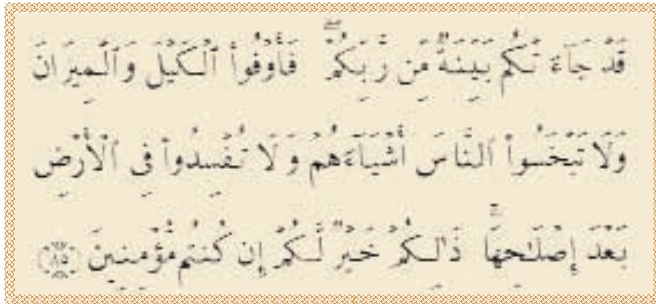 قَدْ جَآءَ تْكُم بَيِّنَةٌ مِّن رَّبِّكُمْ ۖ فَأَوْفُوا۟ ٱلْكَيْلَ وَٱلْمِيزَانَ
وَلَا تَبْخَسُوا۟ ٱلنَّاسَ أَشْيَآءَهُمْ وَلَا تُفْسِدُوا۟ فِى ٱلْأَرْضِ
بَعْدَ إِصْلَـٰحِهَا ۚ ذَٰلِكُمْ خَيْرٌ لَّكُمْ إِن كُنتُم مُّؤْمِنِينَ ﴿٨٥﴾